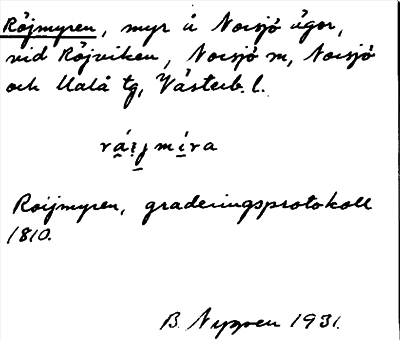 Röjmyren, myr å Norsjö ägor,
vid Röjviken, Norsjö sn, Norsjö
och Malå tg, Västerb. l.
Roijmyren, graderingsprotokoll
1810.
B. Nygren 1931.